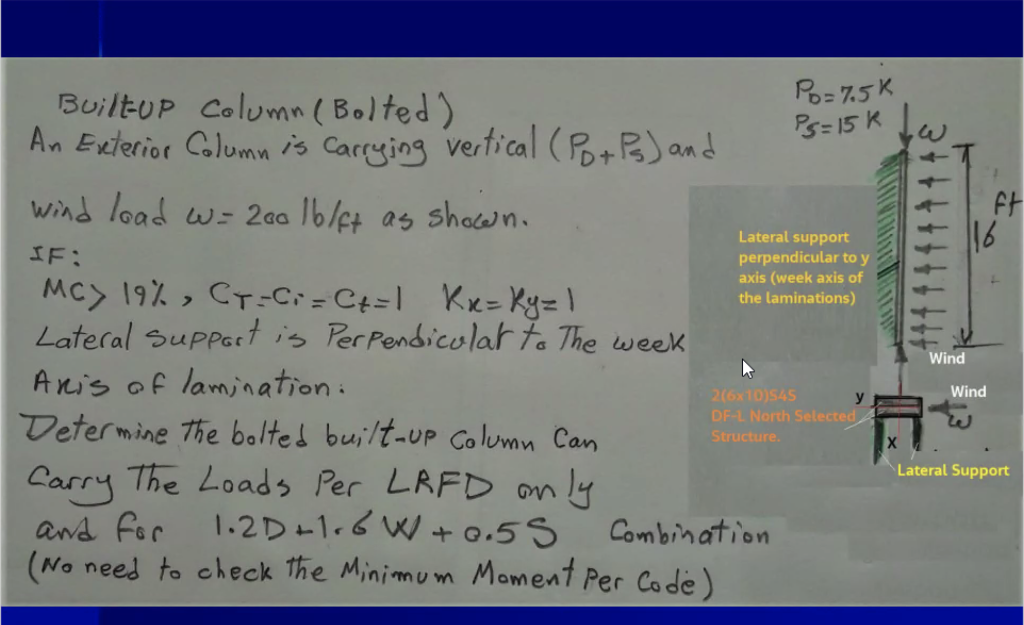 Built-UP Column (Bolted)
An Exterior Column is Carrying vertical (PD+PS) and
wind load w= 200 lb/ft as shown.
IF:
MC> 19%, CT=Ci=Ct=1 Kx=Ky=1
Lateral support is Perpendicular to The week
Axis of lamination.
Determine The bolted built-up Column Can
Carry The Loads Per LRFD only
and for 1.2D+1.6W+0.5S Combination
(No need to check the Minimum Moment Per Code)
PD=7.5K
PS=15 K
ω
16 ft
Lateral support
perpendicular to y
axis (week axis of
the laminations)
Wind
y
Wind
ω
2(6x10)S4S
DF-L North Selected
Structure.
X
Lateral Support